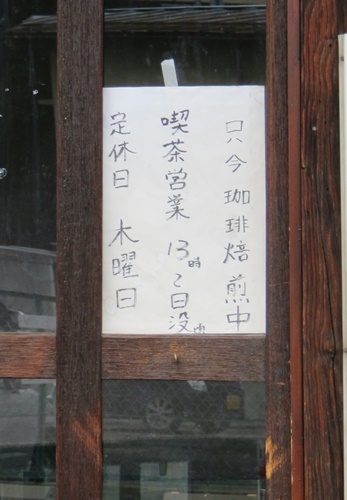 只今珈琲焙煎中
喫茶営業 13時〜日没内
定休日 木曜日